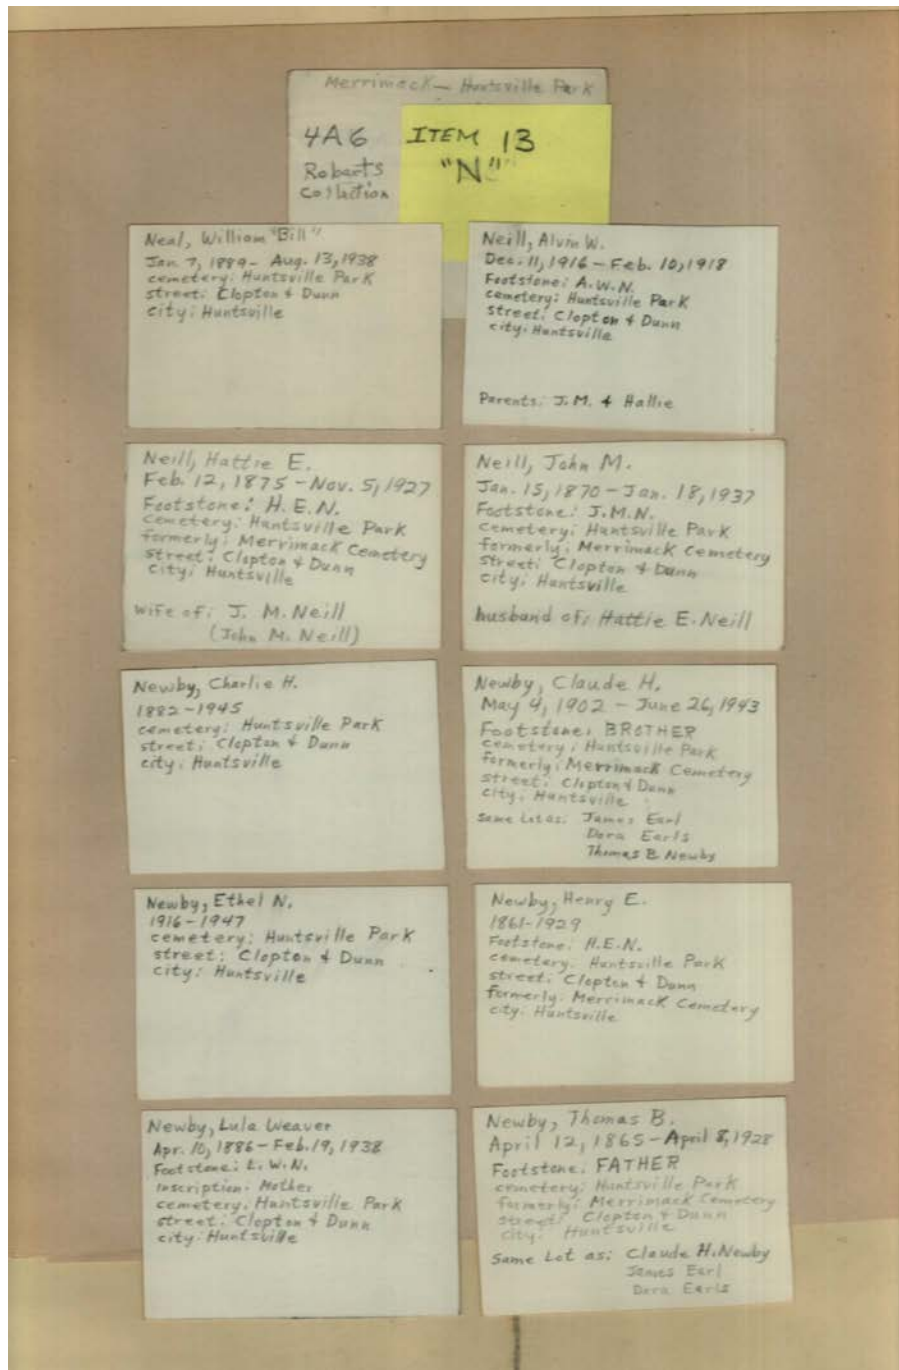 Merrimack — Huntsville Park
4A6
Roberts
Collection
ITEM 13
"N"
Neal, William "Bill"
Jan. 7, 1889 - Aug. 13, 1938
cemetery: Huntsville Park
street: Clopton & Dunn
city: Huntsville
Neill, Alvin W.
Dec. 11, 1916 - Feb. 10, 1918
Footstone: A.W.N.
cemetery: Huntsville Park
street: Clopton & Dunn
city: Huntsville
Parents: J.M. & Hallie
Neill, Hattie E.
Feb. 12, 1875 - Nov. 5, 1927
Footstone: H.E.N.
cemetery: Huntsville Park
formerly: Merrimack Cemetery
street: Clopton & Dunn
city: Huntsville
wife of: J. M. Neill
(John M. Neill)
Neill, John M.
Jan. 15, 1870 - Jan. 18, 1937
Footstone: J.M.N.
cemetery: Huntsville Park
formerly: Merrimack Cemetery
street: Clopton & Dunn
city: Huntsville
husband of: Hattie E. Neill
Newby, Charlie H.
1882-1945
cemetery: Huntsville Park
street: Clopton & Dunn
city: Huntsville
Newby, Claude H.
May 4, 1902 - June 26, 1943
Footstone: BROTHER
cemetery: Huntsville Park
formerly: Merrimack Cemetery
street: Clopton & Dunn
city: Huntsville
Same Lot as: James Earl
Dora Earls
Thomas B. Newby
Newby, Ethel N.
1916-1947
cemetery: Huntsville Park
street: Clopton & Dunn
city: Huntsville
Newby, Henry E.
1861-1929
Footstone: H.E.N.
cemetery: Huntsville Park
street: Clopton & Dunn
formerly: Merrimack Cemetery
city: Huntsville
Newby, Lula Weaver
Apr. 10, 1886 - Feb. 19, 1938
Footstone: L.W.N.
Inscription: Mother
cemetery: Huntsville Park
street: Clopton & Dunn
city: Huntsville
Newby, Thomas B.
April 12, 1865 - April 8, 1928
Footstone: FATHER
cemetery: Huntsville Park
formerly: Merrimack Cemetery
street: Clopton & Dunn
city: Huntsville
Same Lot as: Claude H. Newby
James Earl
Dora Earls